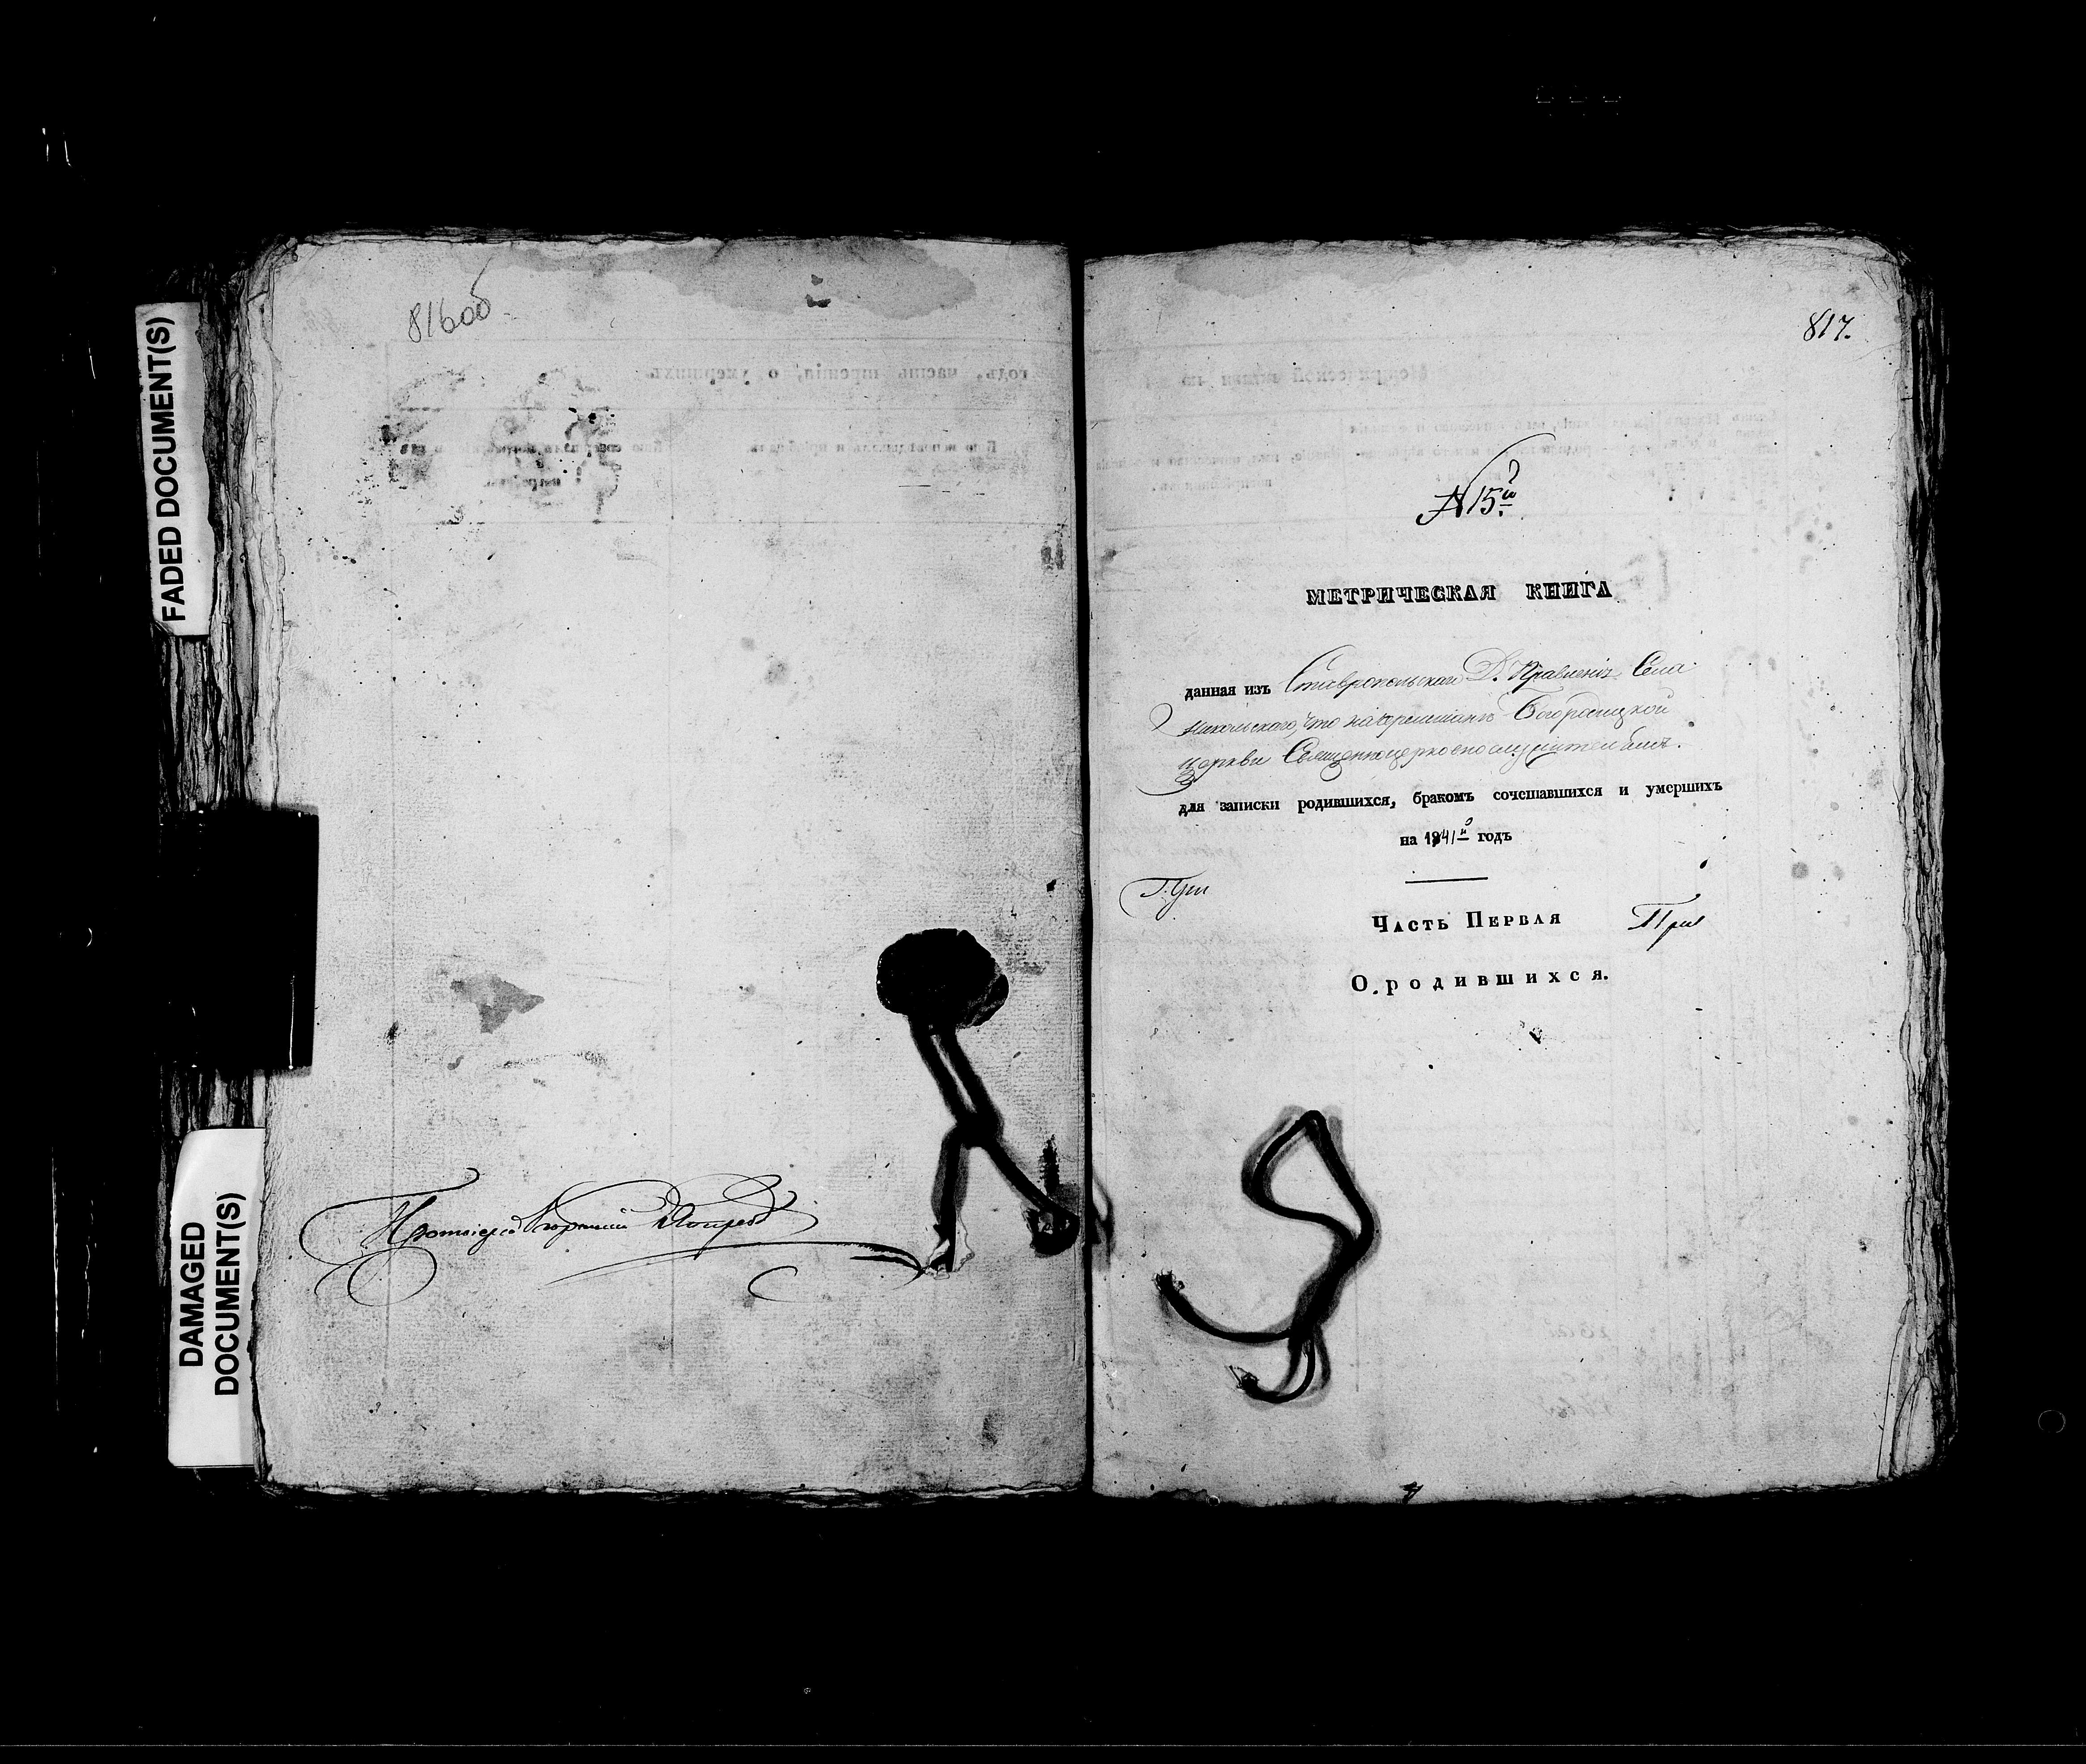 FADED DOCUMENT(S)
DAMAGED
DOCUMENT(S)
816об
годъ, часть третія, о умершихъ.
Протоіерей
817.
№ 15й
МЕТРИЧЕСКАЯ КНИГА
данная изъ Ставропольскаго Д. Правленія Села
Никольскаго, что на Черемшанѣ Богородицкой
церкви Священноцерковнослужителямъ.
для записки родившихся, бракомъ сочетавшихся и умершихъ
на 1841й годъ
Часть Первая
О родившихся.